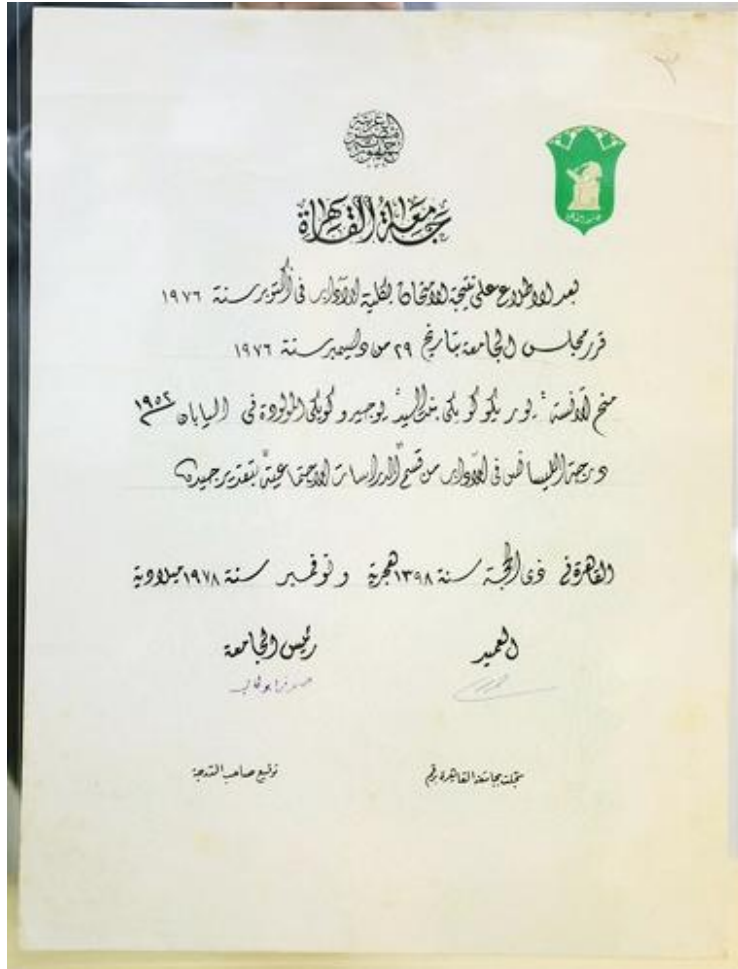 جمهورية مصر العربية
جامعة القاهرة
بعد الاطلاع على نتيجة الامتحان بكلية الآداب فى أكتوبر سنة ١٩٧٦
قرر مجلس الجامعة بتاريخ ٢٩ من ديسمبر سنة ١٩٧٦
منح الآنسة / يوريكو كويكى بنت السيد / يوجيرو كويكى المولودة فى اليابان سنة ١٩٥٢
درجة الليسانس فى الآداب من قسم الدراسات الاجتماعية بتقدير جيد
القاهرة فى ذى الحجة سنة ١٣٩٨ هجرية و نوفمبر سنة ١٩٧٨ ميلادية
العميد رئيس الجامعة
سجلت بجامعة القاهرة برقم توقيع صاحب الدرجة